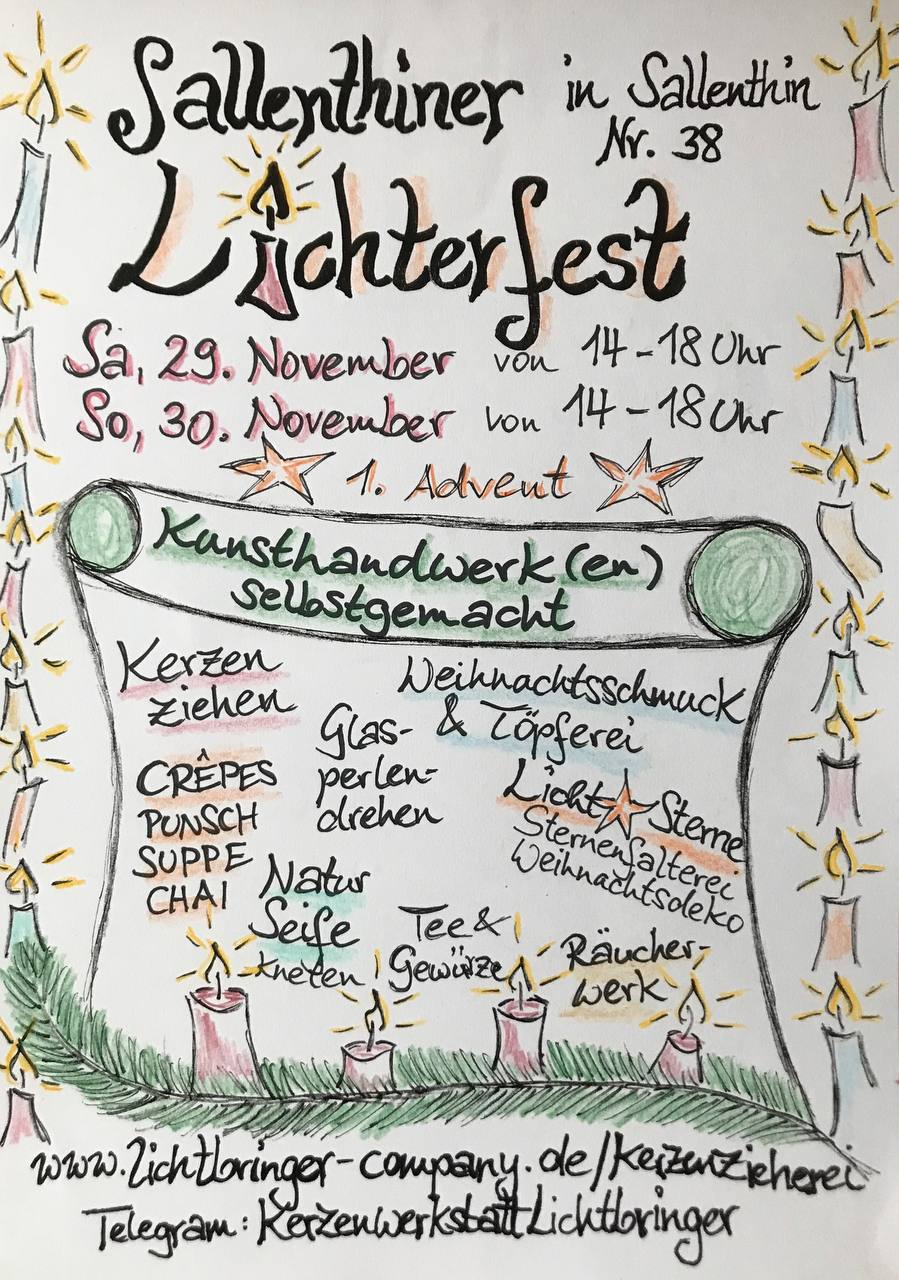 Sallenthiner in Sallenthin
Nr. 38
Lichterfest
Sa, 29. November von 14-18 Uhr
So, 30. November von 14-18 Uhr
1. Advent
Kunsthandwerk(en)
selbstgemacht
Kerzen
ziehen
Weihnachtsschmuck
& Töpferei
Glas-
perlen-
drehen
CRÊPES
PUNSCH
SUPPE
CHAI
Licht Sterne
Sternenfalterei
Weihnachtsdeko
Natur
Seife
kneten
Tee &
Gewürze
Räucher-
werk
www.lichtbringer-company.de/kerzenzieherei
Telegram: KerzenwerkstattLichtbringer